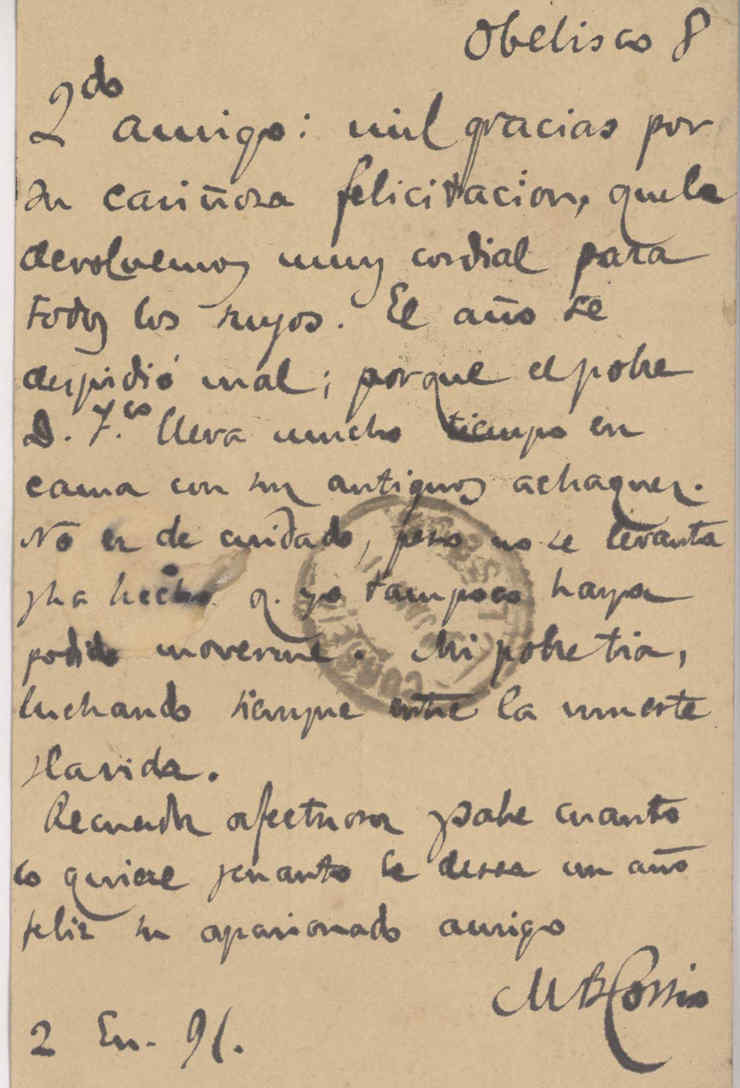 Obelisco 8
Qdo amigo: mil gracias por
su cariñosa felicitacion, que le
devolvemos muy cordial para
todos los suyos. El año se
despidió mal; porque el pobre
D. F.co lleva mucho tiempo en
cama con sus antiguos achaques.
No es de cuidado, pero no se levanta
y ha hecho q. yo tampoco haya
podido moverme. Mi pobre tia,
luchando siempre entre la muerte
y la vida.
Recuerdos afectuosos y sabe cuanto
lo quiere y cuanto le desea un año
feliz su apasionado amigo
M B Cossio
2 En. 91.
CORREOS